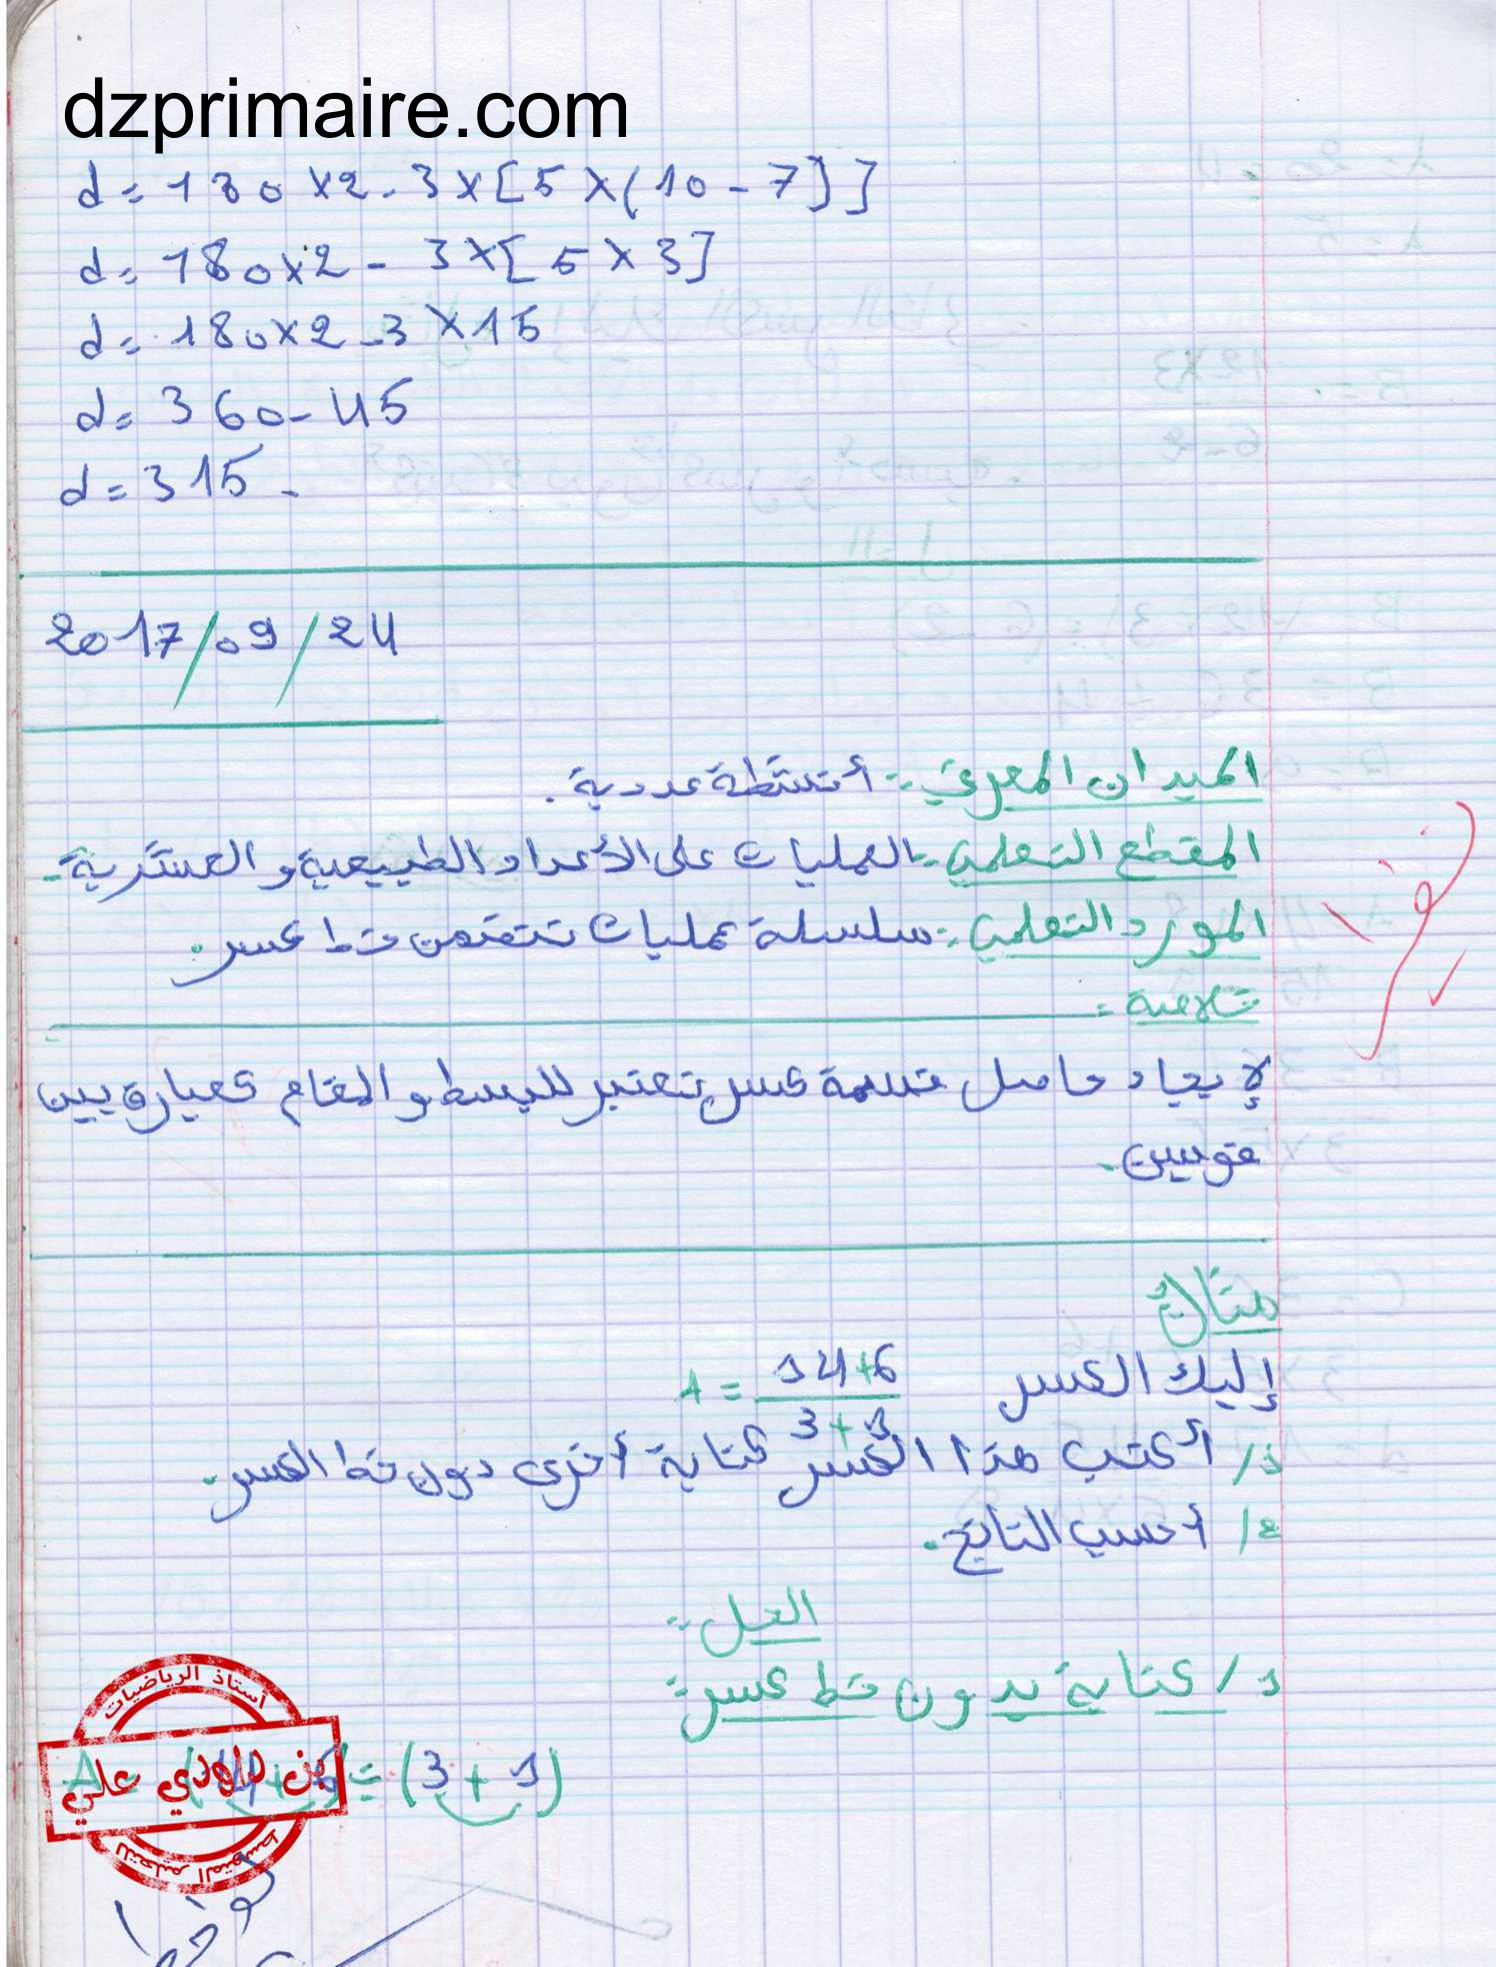 dzprimaire.com
d = 180 × 2 - 3 × [5 × (10 - 7)]
d = 180 × 2 - 3 × [5 × 3]
d = 180 × 2 - 3 × 15
d = 360 - 45
d = 315 -
2017/09/24
الميدان المعرفي :- أنشطة عددية.
المقطع التعلمي :- العمليات على الأعداد الطبيعية و العشرية -
المورد التعلمي :- سلسلة عمليات تتضمن خط كسر.
خلاصة :
لإيجاد حاصل قسمة كسر نعتبر للبسط و المقام كعبارة بين
قوسين.
مثال
إليك الكسر A = 14+6 / 3+1
1/ أكتب هذا الكسر كتابة أخرى دون خط الكسر.
2/ أحسب الناتج.
الحل :-
1/ كتابة بدون خط كسر :-
÷ (3 + 1)
أستاذ الرياضيات
علي
للتعليم المتوسط